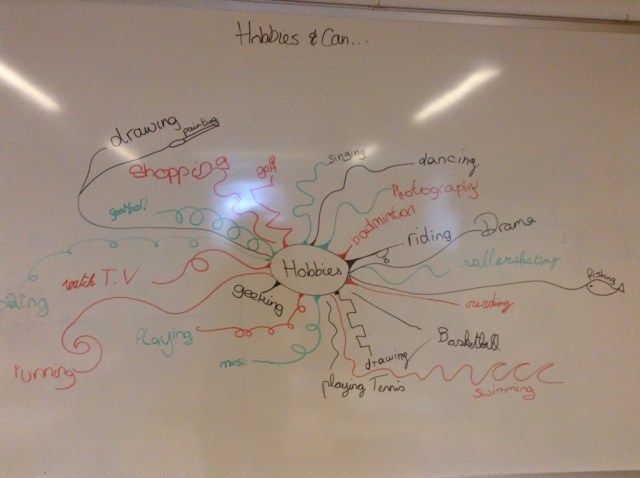 Hobbies & Can...
drawing
painting
shopping
golf
singing
dancing
Photography
badminton
riding
Drama
rollerskating
fishing
football
watch T.V
Hobbies
geeking
reading
running
Playing
music
drawing
Basketball
playing Tennis
swimming